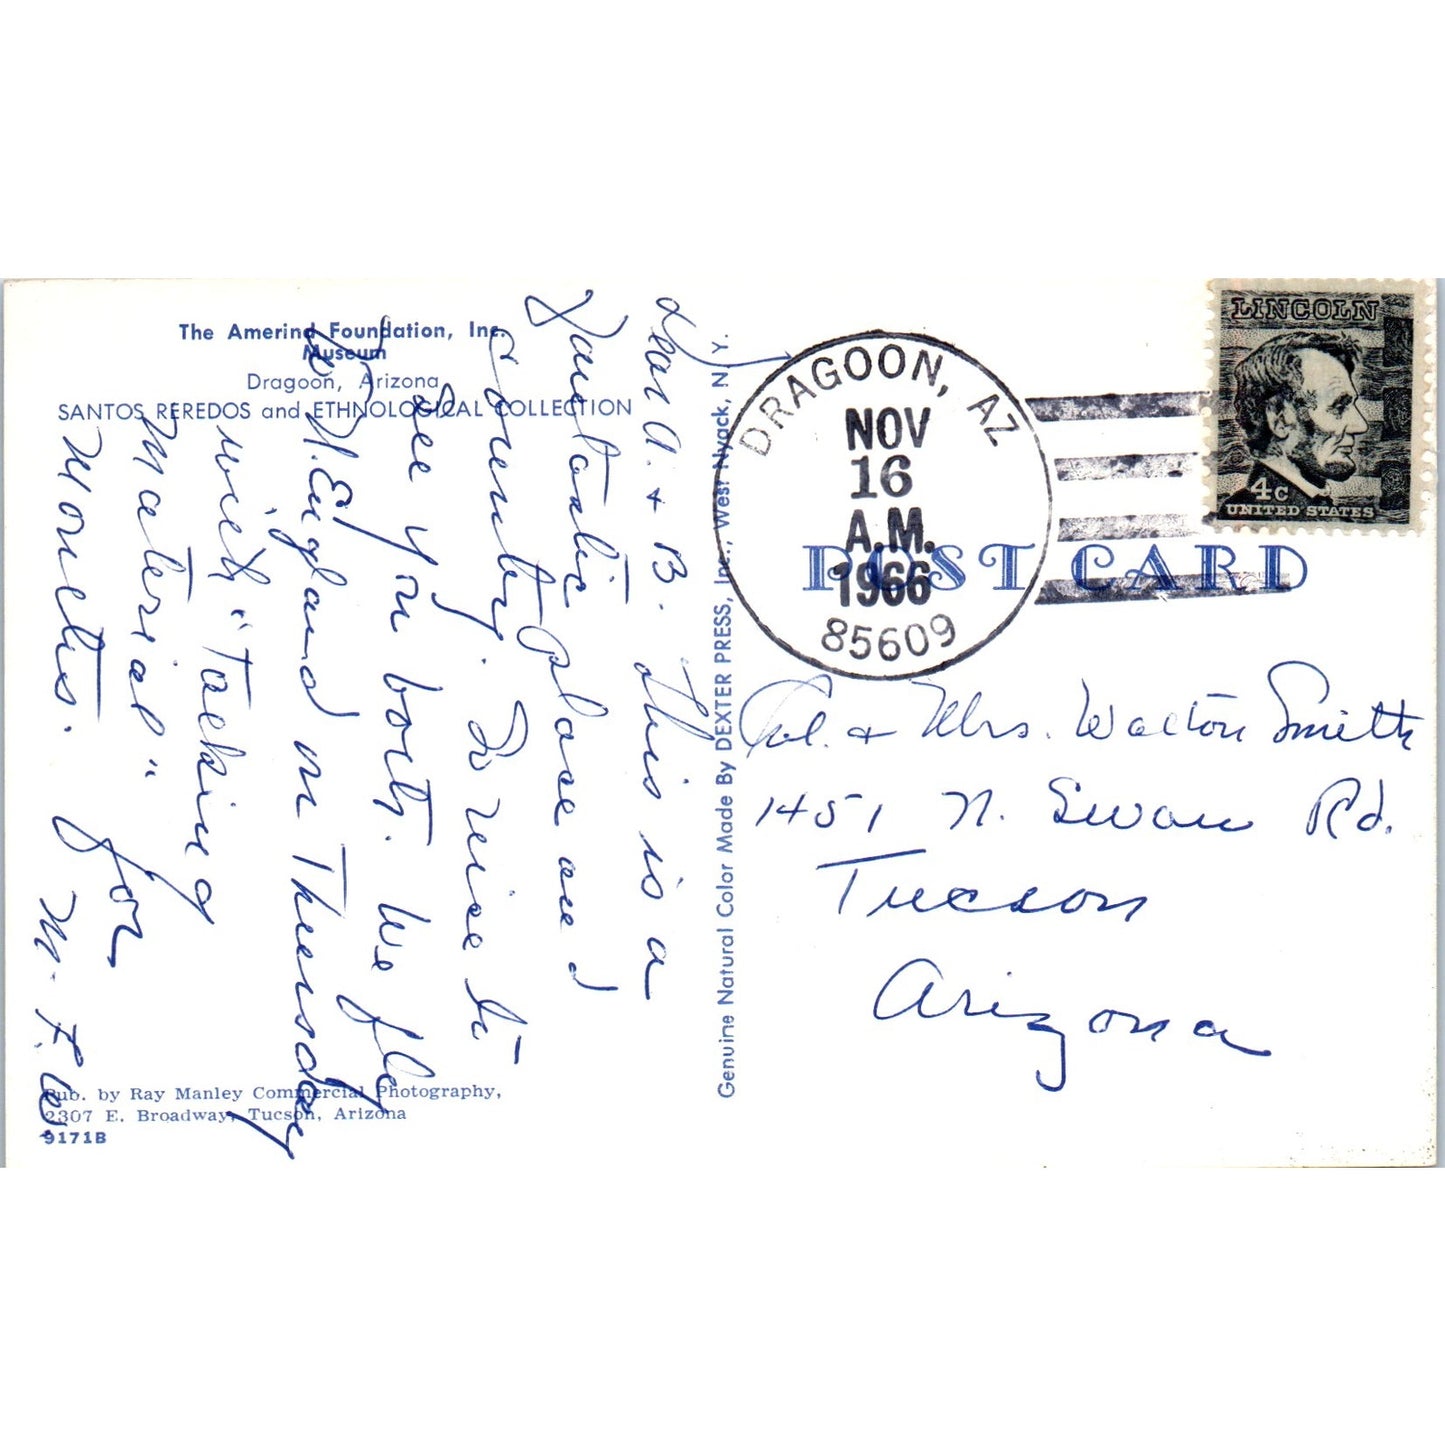 The Amerind Foundation, Inc.
Museum
Dragoon, Arizona
SANTOS REREDOS and ETHNOLOGICAL COLLECTION
Dear A. & B. This is a
fantastic place and
country. So nice to
see you both. We fly
to N. England on Thursday
with "Talking
Material" for
Months.
M. F. W.
Pub. by Ray Manley Commercial Photography,
2307 E. Broadway, Tucson, Arizona
9171B
Genuine Natural Color Made By DEXTER PRESS, Inc., West Nyack, N.Y.
DRAGOON, AZ
NOV
16
A.M.
1966
85609
LINCOLN
4c
UNITED STATES
POST CARD
Col. & Mrs. Walton Smith
1451 N. Swan Rd.
Tucson
Arizona